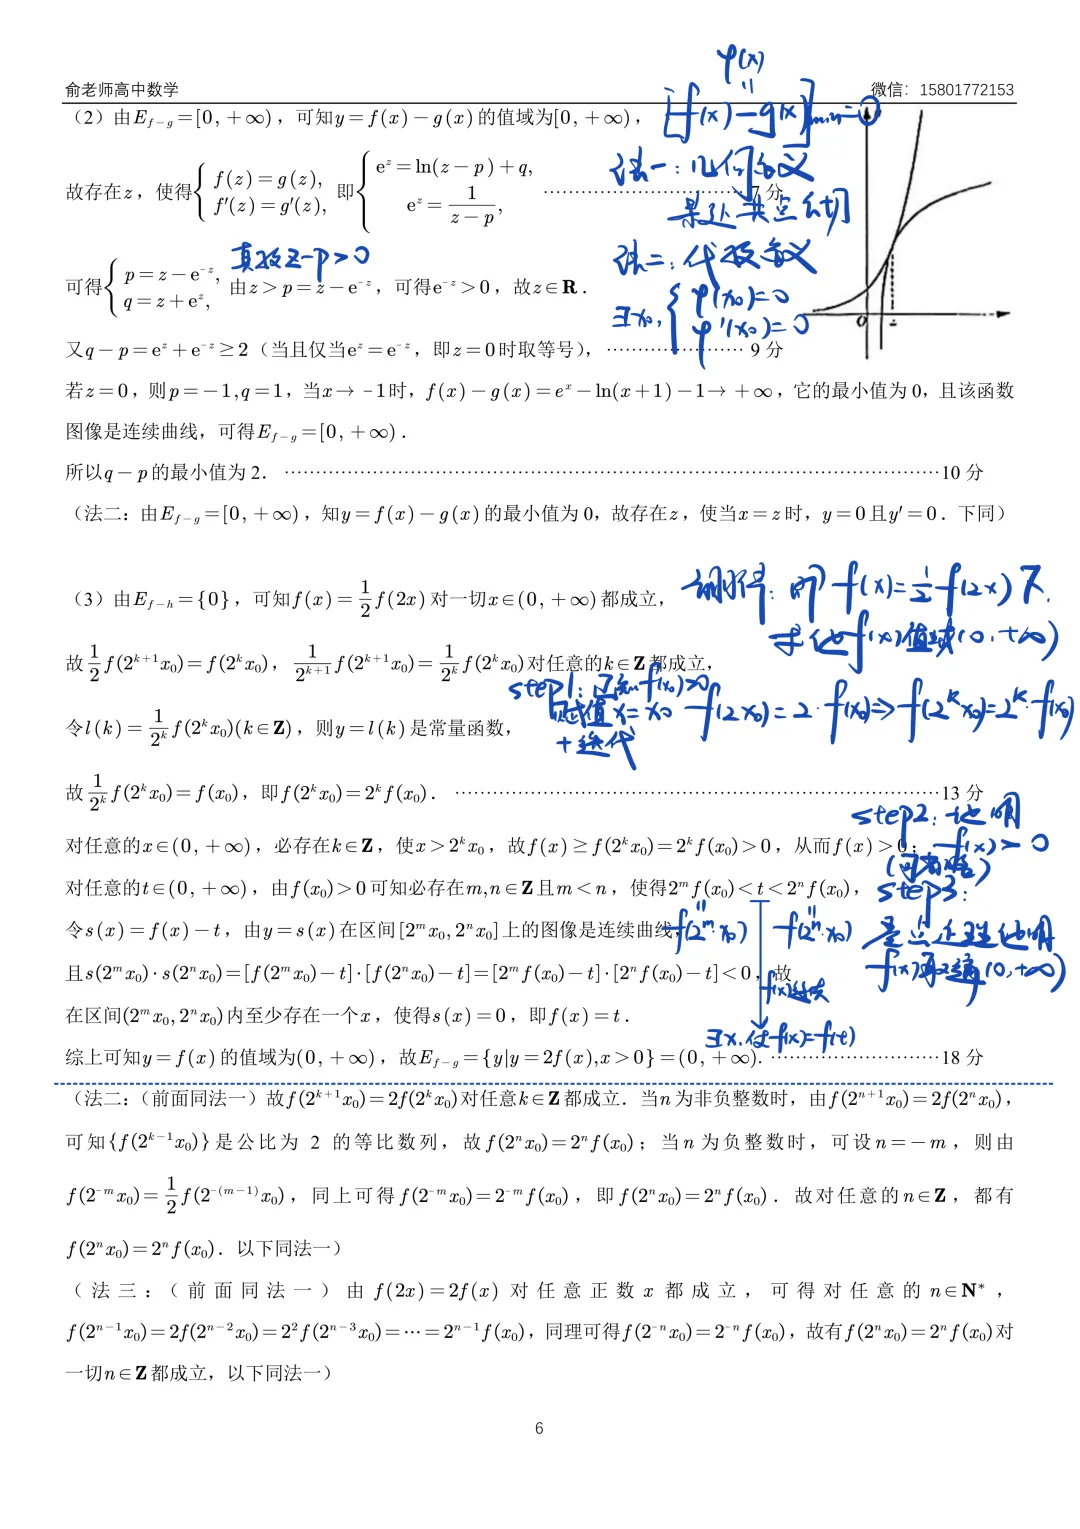 俞老师高中数学
微信：15801772153
φ(x)
‖
[f(x)-g(x)]min=0
（2）由E_{f-g}=[0,+∞)，可知y=f(x)-g(x)的值域为[0,+∞)，
法一：几何意义
故存在z，使得{f(z)=g(z), f′(z)=g′(z), 即{e^z=ln(z-p)+q, e^z=1/(z-p), ……………………………7分
某处共点公切
真数z-p>0
法二：代数意义
可得{p=z-e^{-z}, q=z+e^z, 由z>p=z-e^{-z}，可得e^{-z}>0，故z∈R．
∃x₀,{φ(x₀)=0 φ′(x₀)=0
O
z
又q-p=e^z+e^{-z}≥2（当且仅当e^z=e^{-z}，即z=0时取等号），…………………9分
若z=0，则p=-1,q=1，当x→-1时，f(x)-g(x)=e^x-ln(x+1)-1→+∞，它的最小值为0，且该函数
图像是连续曲线，可得E_{f-g}=[0,+∞)．
所以q-p的最小值为2．……………………………………………………10分
（法二：由E_{f-g}=[0,+∞)，知y=f(x)-g(x)的最小值为0，故存在z，使当x=z时，y=0且y′=0．下同）
（3）由E_{f-h}={0}，可知f(x)=1/2 f(2x)对一切x∈(0,+∞)都成立，
翻译：即f(x)=1/2 f(2x)下,
求证f(x)值域(0,+∞)
故1/2 f(2^{k+1}x₀)=f(2^k x₀)，1/2^{k+1} f(2^{k+1}x₀)=1/2^k f(2^k x₀)对任意的k∈Z都成立，
step1：已知f(x₀)>0
赋值x=x₀ f(2x₀)=2·f(x₀)⇒f(2^k x₀)=2^k·f(x₀)
+迭代
令l(k)=1/2^k f(2^k x₀)(k∈Z)，则y=l(k)是常量函数，
故1/2^k f(2^k x₀)=f(x₀)，即f(2^k x₀)=2^k f(x₀)．……………………………………13分
step2：证明
f(x)>0
对任意的x∈(0,+∞)，必存在k∈Z，使x>2^k x₀，故f(x)≥f(2^k x₀)=2^k f(x₀)>0，从而f(x)>0；
step3：
对任意的t∈(0,+∞)，由f(x₀)>0可知必存在m,n∈Z且m<n，使得2^m f(x₀)<t<2^n f(x₀)，
‖ ‖
f(2^m·x₀) f(2^n·x₀)
零点定理证明
令s(x)=f(x)-t，由y=s(x)在区间[2^m x₀,2^n x₀]上的图像是连续曲线，
且s(2^m x₀)·s(2^n x₀)=[f(2^m x₀)-t]·[f(2^n x₀)-t]=[2^m f(x₀)-t]·[2^n f(x₀)-t]<0，故
f(x)连续
在区间(2^m x₀,2^n x₀)内至少存在一个x，使得s(x)=0，即f(x)=t．
∃x,使f(x)=f(t)
综上可知y=f(x)的值域为(0,+∞)，故E_{f-g}={y|y=2f(x),x>0}=(0,+∞).………………………18分
（法二：（前面同法一）故f(2^{k+1}x₀)=2f(2^k x₀)对任意k∈Z都成立．当n为非负整数时，由f(2^{n+1}x₀)=2f(2^n x₀)，
可知{f(2^{k-1}x₀)}是公比为 2 的等比数列，故f(2^n x₀)=2^n f(x₀)；当n为负整数时，可设n=-m，则由
f(2^{-m}x₀)=1/2 f(2^{-(m-1)}x₀)，同上可得f(2^{-m}x₀)=2^{-m}f(x₀)，即f(2^n x₀)=2^n f(x₀)．故对任意的n∈Z，都有
f(2^n x₀)=2^n f(x₀)．以下同法一）
（法三：（前面同法一）由f(2x)=2f(x)对任意正数x都成立，可得对任意的n∈N*，
f(2^{n-1}x₀)=2f(2^{n-2}x₀)=2²f(2^{n-3}x₀)=⋯=2^{n-1}f(x₀)，同理可得f(2^{-n}x₀)=2^{-n}f(x₀)，故有f(2^n x₀)=2^n f(x₀)对
一切n∈Z都成立，以下同法一）
6